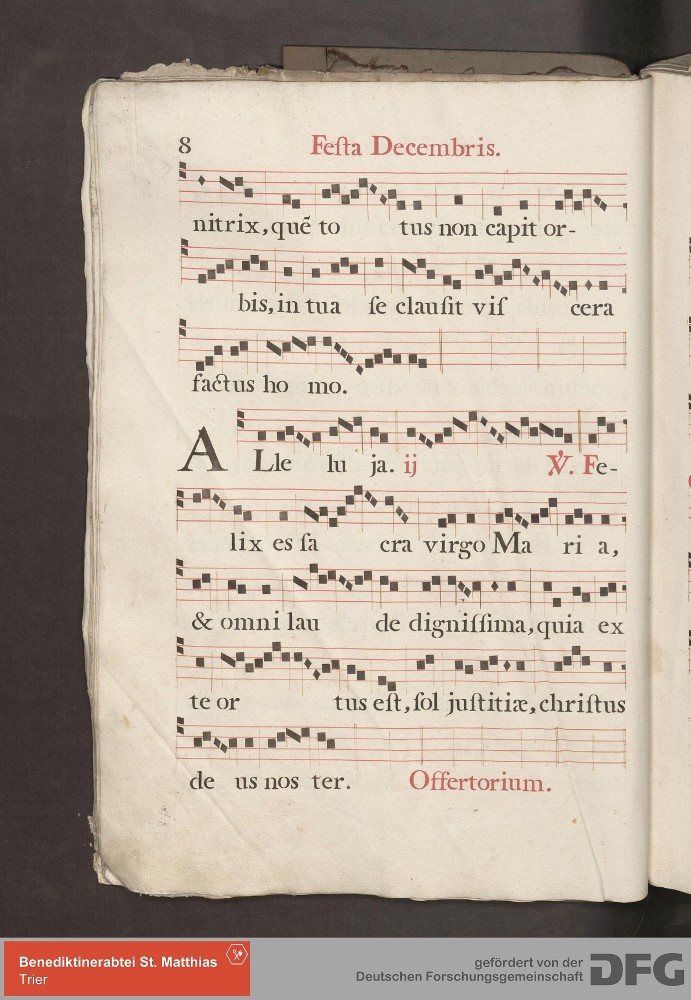 8 Feſta Decembris.
nitrix, quē to tus non capit or-
bis, in tua ſe clauſit viſ cera
factus ho mo.
A Lle lu ja. ij ℣. Fe-
lix es ſa cra virgo Ma ri a,
& omni lau de digniſſima, quia ex
te or tus eſt, ſol juſtitiæ, chriſtus
de us nos ter. Offertorium.
Benediktinerabtei St. Matthias
Trier
gefördert von der
Deutschen Forschungsgemeinschaft
DFG